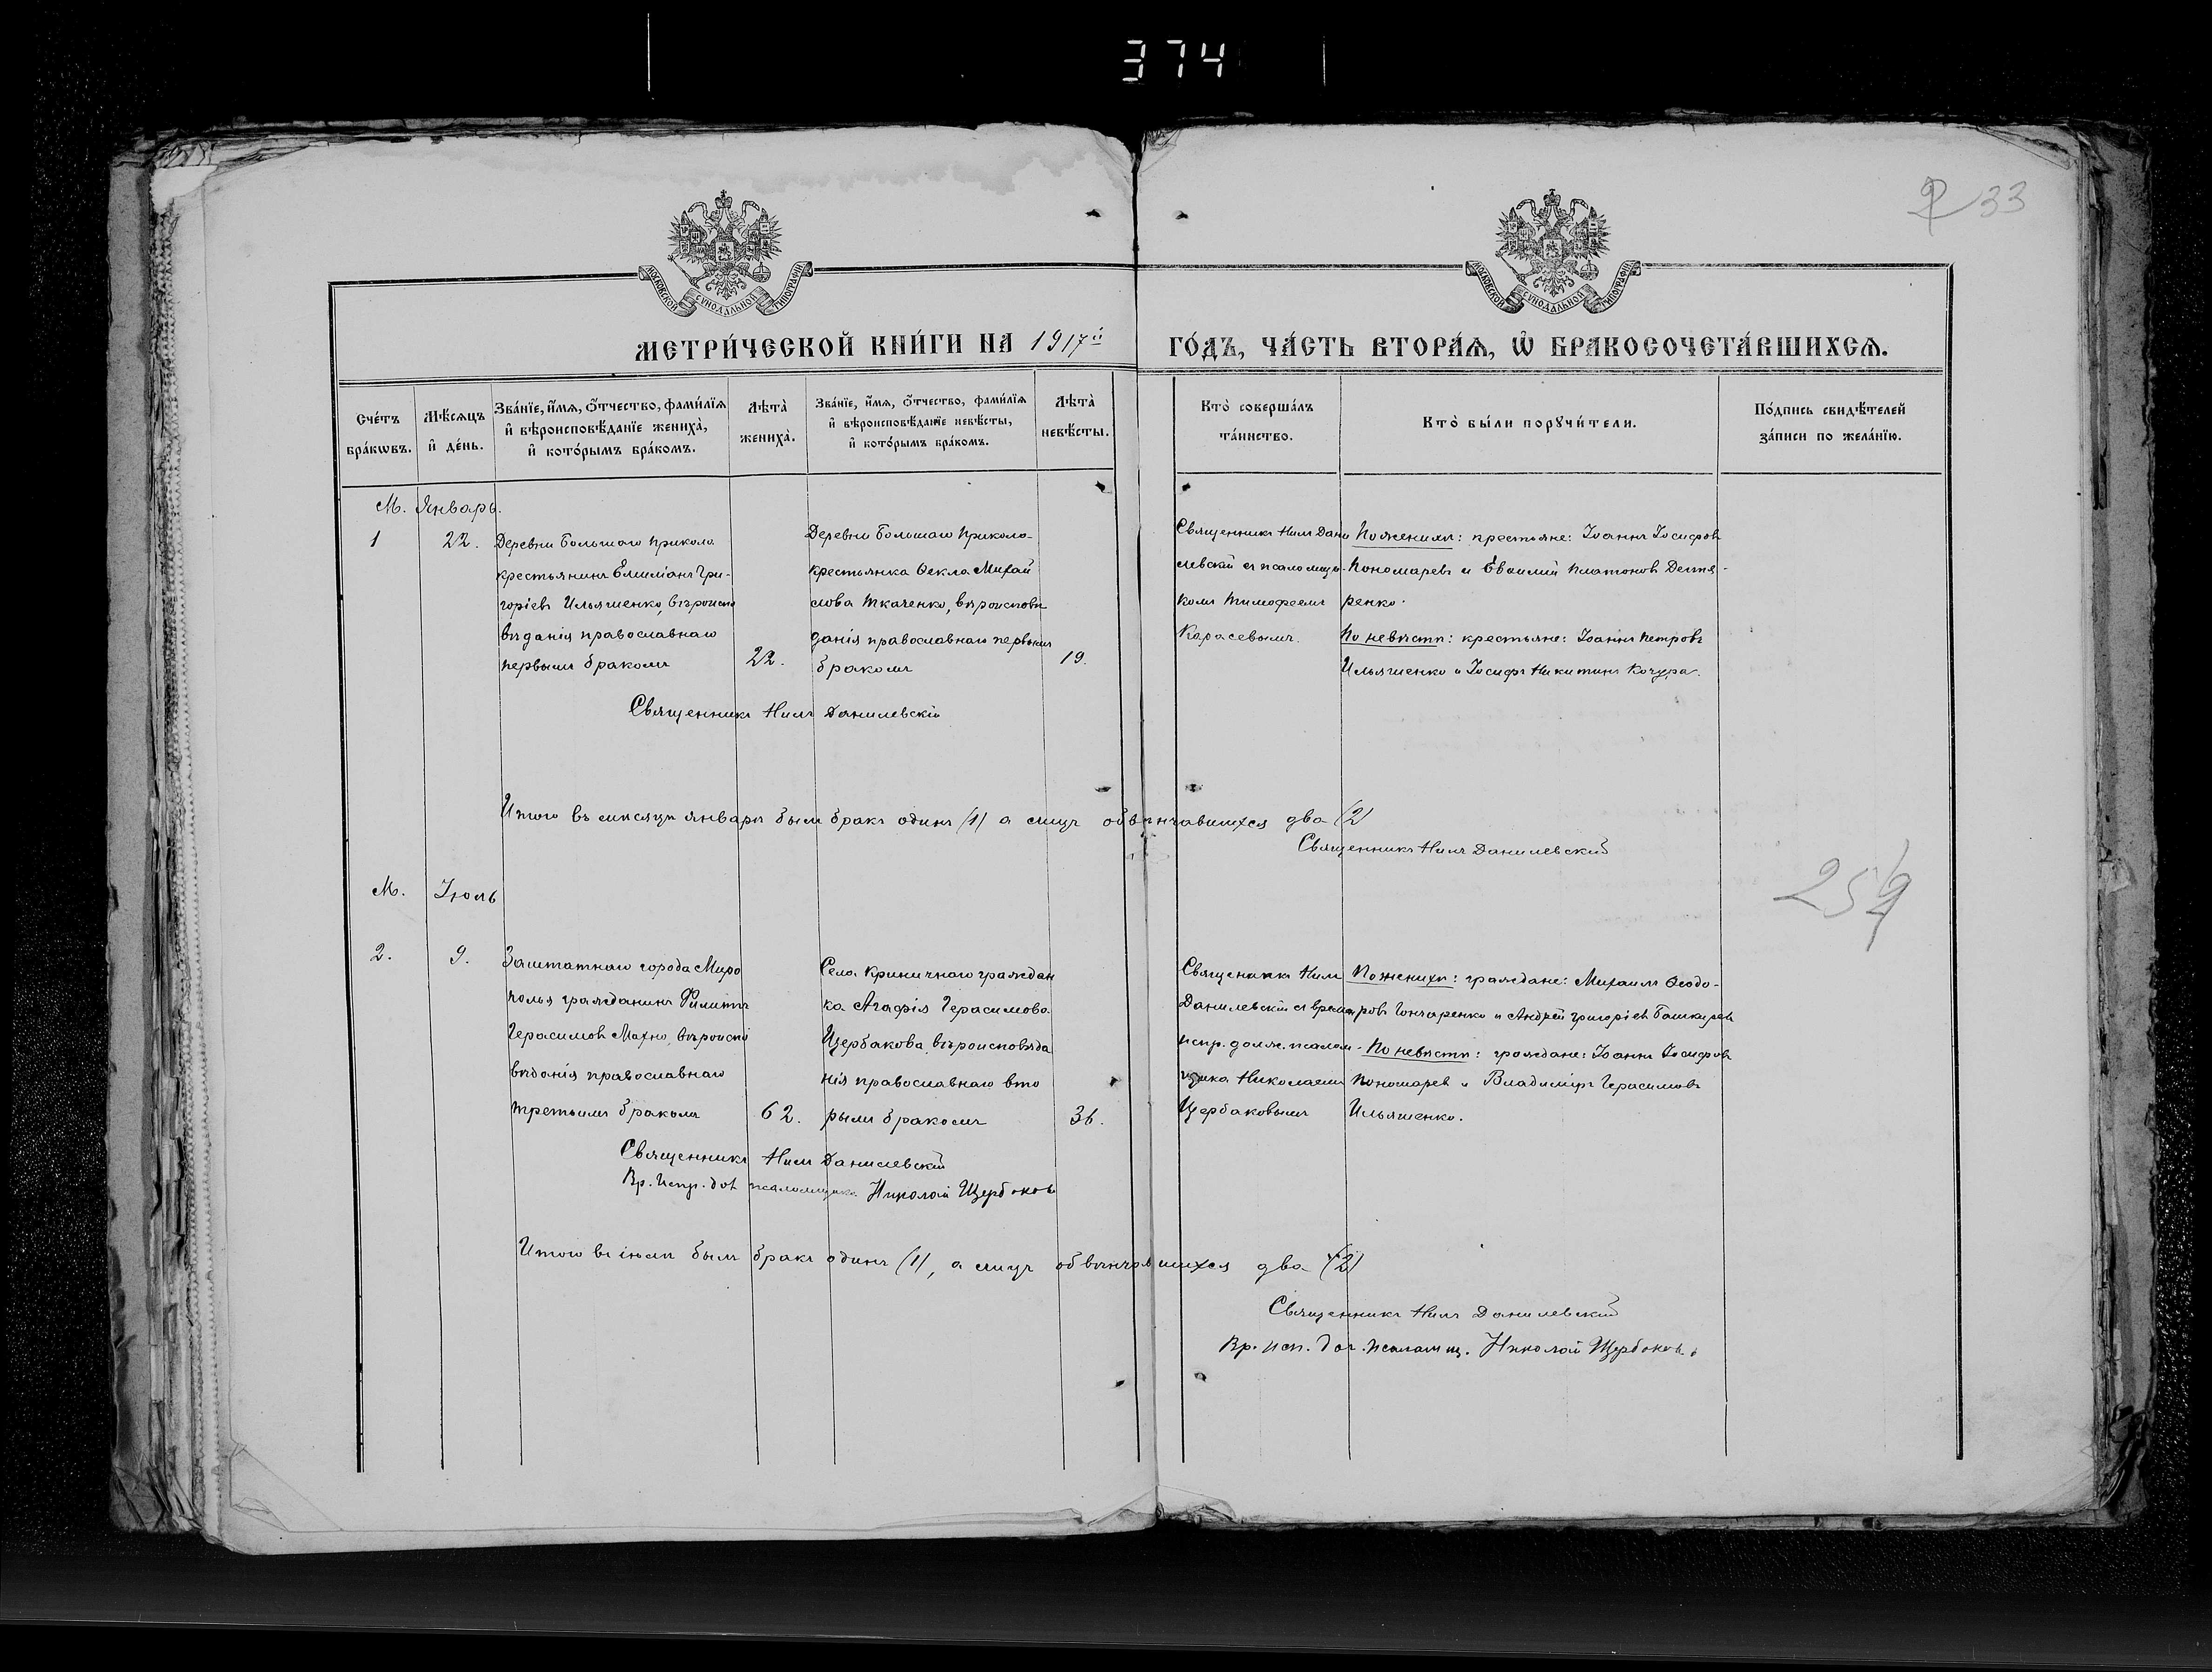 374
233
МОСКОВСКОЙ СѴНОДАЛЬНОЙ ТИПОГРАФІИ
МОСКОВСКОЙ СѴНОДАЛЬНОЙ ТИПОГРАФІИ
МЕТРИ́ЧЕСКОЙ КНИ́ГИ НА 1917й ГО́ДЪ, ЧА́СТЬ ВТОРА́Ѧ, Ѽ БРАКОСОЧЕТА́ВШИХСѦ.
Сче́тъ бра́кѡвъ.
Мѣ́сѧцъ и҆ де́нь.
Зва́нїе, и҆́мѧ, ѻ҆́тчество, фами́лїѧ
и҆ вѣроисповѣ́данїе жениха̀,
и҆ кото́рымъ бра́комъ.
Лѣта̀ жениха̀.
Зва́нїе, и҆́мѧ, ѻ҆́тчество, фами́лїѧ
и҆ вѣроисповѣ́данїе невѣ́сты,
и҆ кото́рымъ бра́комъ.
Лѣта̀ невѣ́сты.
Кто̀ соверша́лъ
та́инство.
Кто̀ бы́ли порꙋчи́тели.
По́дпись свидѣ́телей
за́писи по жела́нїю.
М. Январь.
1
22.
Деревни Большаго Прикола
крестьянинъ Емиліанъ Гри-
горіевъ Ильяшенко, вѣроиспо
вѣданія православнаго
первымъ бракомъ
22.
Деревни Большаго Приколо-
крестьянка Ѳекла Михай
лова Ткаченко, вѣроисповѣ
данія православнаго первымъ
бракомъ
19.
Священникъ Нилъ Дани
левскій съ псаломщи-
комъ Тимофеемъ
Карасевымъ.
По женихѣ: крестьяне: Іоаннъ Іосифовъ
Пономаревъ и Евѳимій Платоновъ Дегтя-
ренко.
По невѣстѣ: крестьяне: Іоаннъ Петровъ
Ильяшенко и Іосифъ Никитинъ Кочура.
Священникъ Нилъ Данилевскій
Итого въ мѣсяцѣ январѣ былъ бракъ одинъ (1) а лицъ обвѣнчавшихся два (2)
Священникъ Нилъ Данилевскій
М. Іюль
2.
9.
Заштатнаго города Миро
полья гражданинъ Филиппъ
Герасимовъ Махно, вѣроиспо
вѣданія православнаго
третьимъ бракомъ
62.
Села Криничнаго граждан
ка Агафія Герасимова
Щербакова, вѣроисповѣда
нія православнаго вто
рымъ бракомъ
36.
Священникъ Нилъ
Данилевскій съ времен
испр. долж. псалом-
щика Николаемъ
Щербаковымъ
По женихѣ: граждане: Михаилъ Ѳеодо-
ровъ Гончаренко и Андрей Григоріевъ Башкиревъ
По невѣстѣ: граждане: Іоаннъ Іосифовъ
Пономаревъ и Владиміръ Герасимовъ
Ильяшенко.
Священникъ Нилъ Данилевскій
Вр. испр. дол псаломщика Николай Щербаковъ
Итого въ іюлѣ былъ бракъ одинъ (1), а лицъ обвѣнчавшихся два (2)
Священникъ Нилъ Данилевскій
Вр. исп. дол. псаломщ. Николай Щербаковъ.